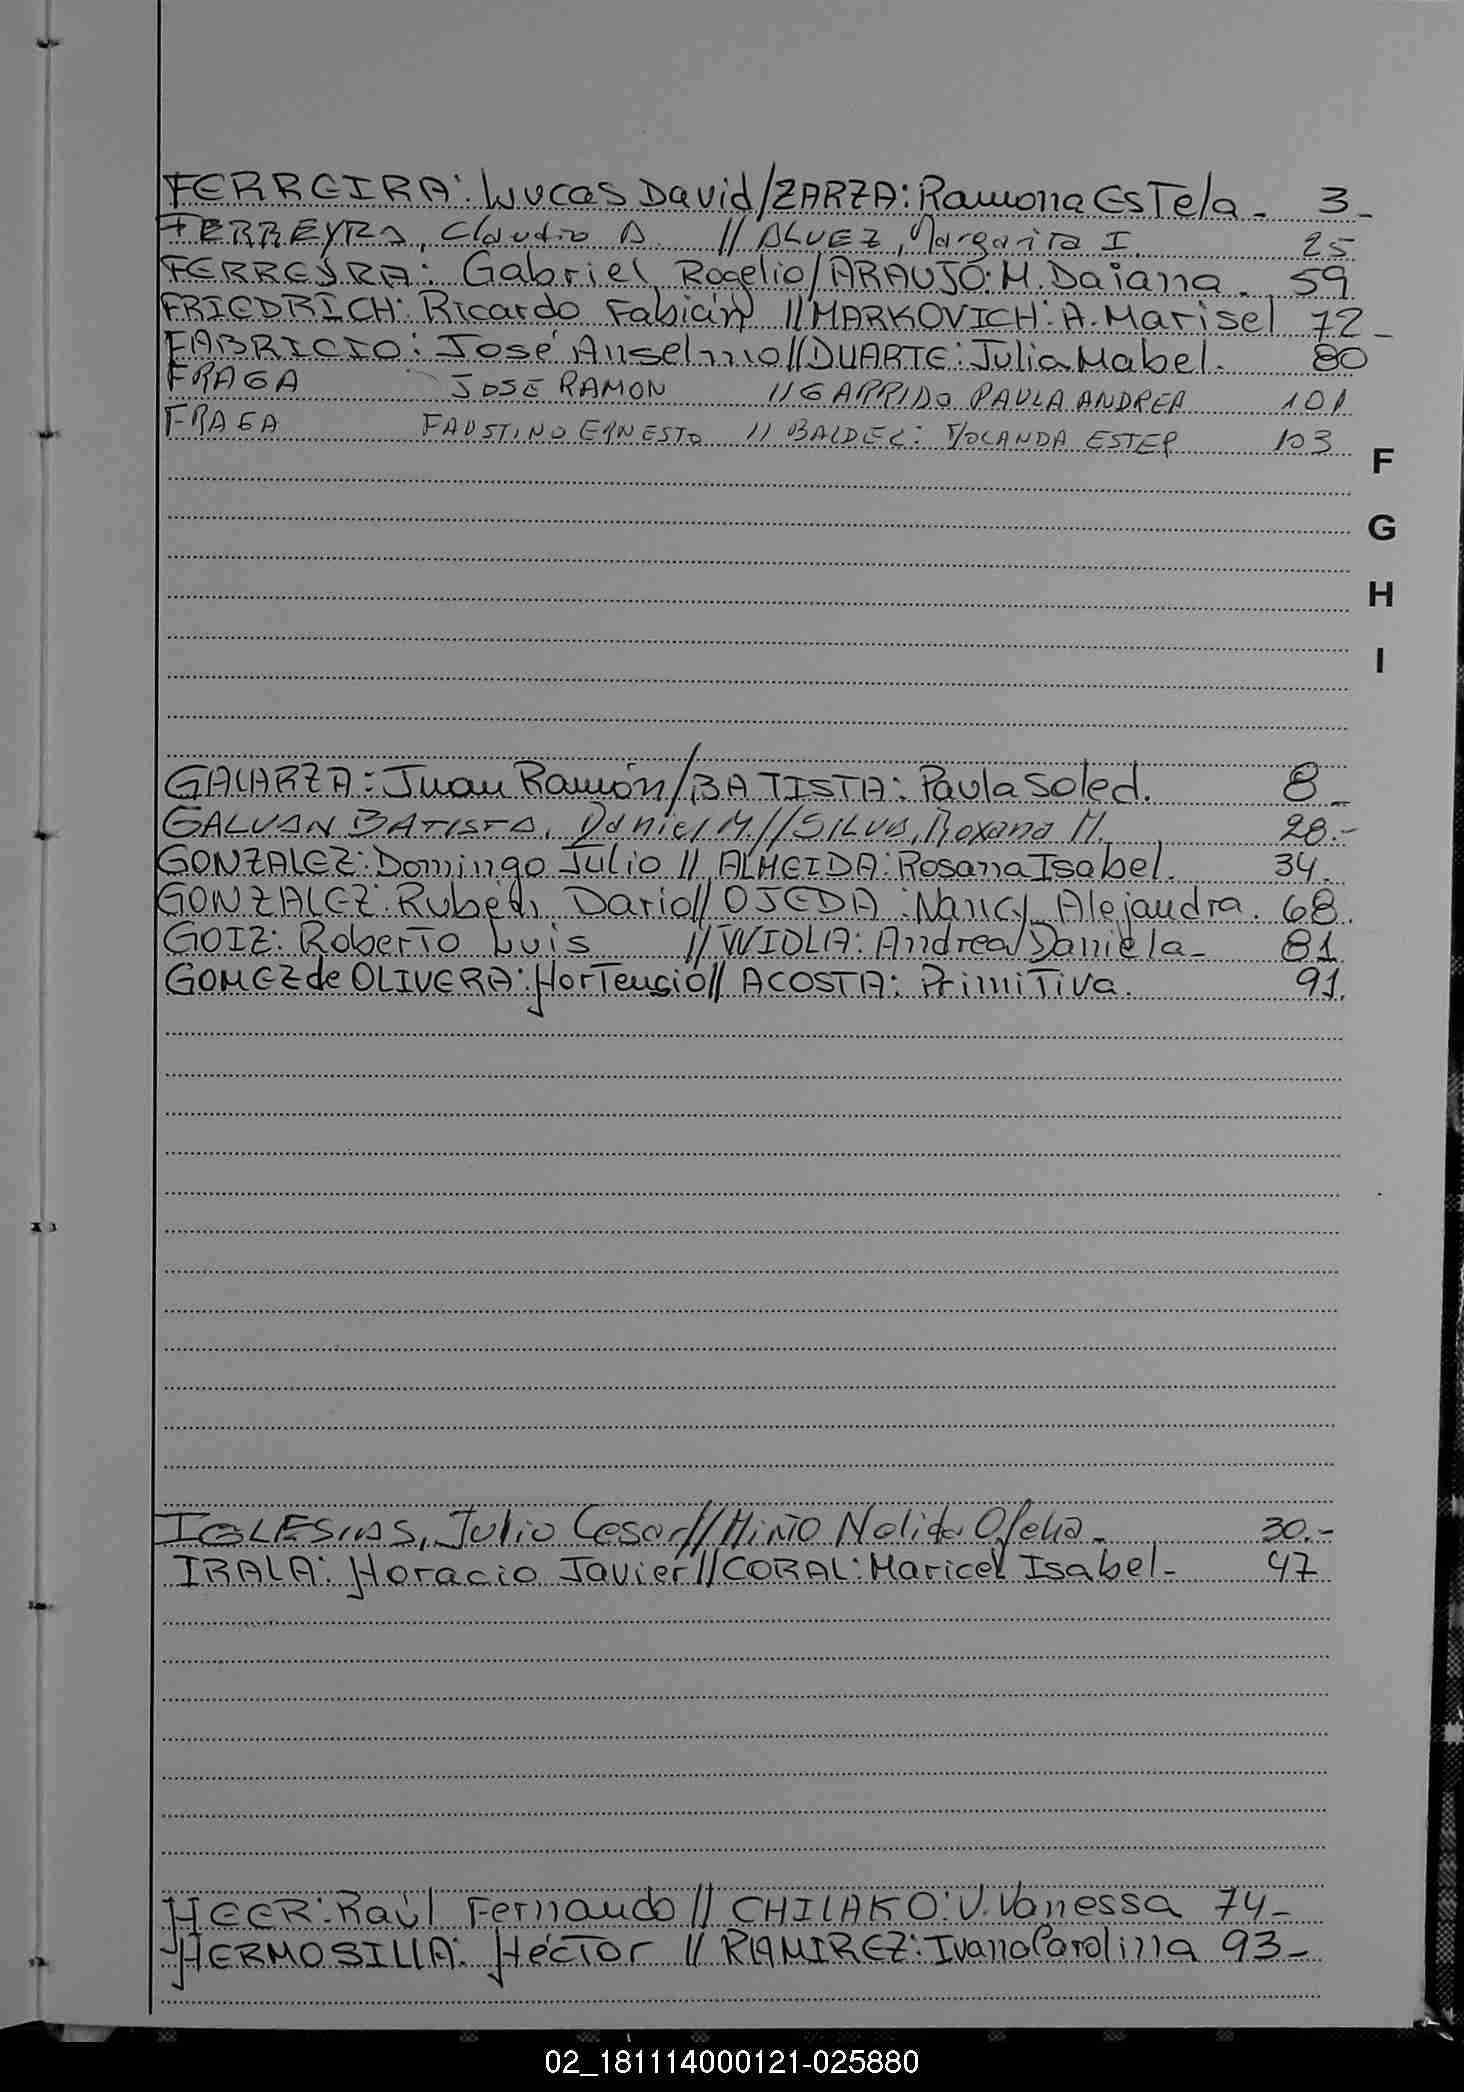 FERREIRA: Lucas David/ZARZA: Ramona EsTela - 3 -
FERREYRA, Claudio A. // ALVEZ, Margarita I. 25
FERREYRA: Gabriel Rogelio/ARAUJO: M. Daiana. 59
FRIEDRICH: Ricardo Fabián // MARKOVICH: A. Marisel 72 -
FABRICIO: José Anselmo // DUARTE: Julia Mabel. 80
FRAGA JOSE RAMON // GARRIDO PAULA ANDREA 101
FRAGA FAUSTINO ERNESTO // BALDEZ: YOLANDA ESTER 103
F
G
H
I
GALARZA: Juan Ramón/BATISTA: Paula Soled. 8 -
GALVAN BATISTA, Daniel M. // SILVA, Roxana M. 28.-
GONZALEZ: Domingo Julio // ALMEIDA: Rosana Isabel. 34.
GONZALEZ: Rubén Dario // OJEDA: Nancy Alejandra. 68.
GOIZ: RoberTo Luis // WIDLA: Andrea Daniela - 81
GOMEZ de OLIVERA: HorTencio // ACOSTA: PrimiTiva. 91.
IGLESIAS, Julio Cesar // MIÑO Nelida Ofelia - 30.-
IRALA: Horacio Javier // CORAL: Maricel Isabel - 47
HEER: Raúl Fernando // CHILAKO: V. Vanessa 74 -
HERMOSILLA: HécTor // RAMIREZ: Ivana Carolina 93 -
02_181114000121-025880